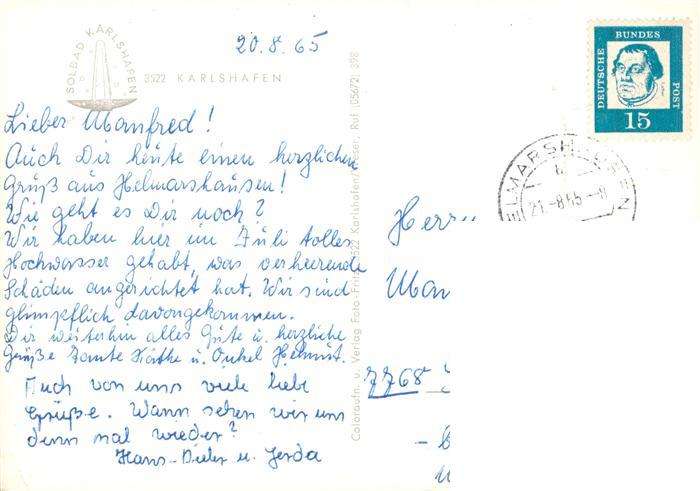 SOLBAD KARLSHAFEN
3522 KARLSHAFEN
20.8.65
Lieber Manfred!
Auch Dir heute einen herzlichen
Gruß aus Helmarshausen!
Wie geht es Dir noch?
Wir haben hier im Juli tolles
Hochwasser gehabt, was verheerende
Schäden angerichtet hat. Wir sind
glimpflich davongekommen.
Dir weiterhin alles Gute u. herzliche
Grüße Tante Käthe u. Onkel Helmut.
Auch von uns viele liebe
Grüße. Wann sehen wir uns
denn mal wieder?
Hans-Dieter u. Gerda
Coloraufn. u. Verlag Foto-Fri 3522 Karlshafen/Weser, Ruf (05672) 398
DEUTSCHE BUNDES POST
15
ELMARSHAUSEN
21.-8.65-
Herr
Man
7768